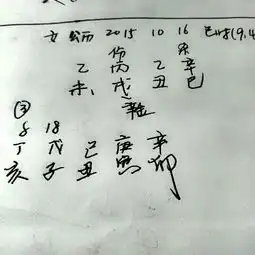 女 公历 2015 10 16 巳时(9.4
伤 杀
乙 丙 乙 辛
未 戌 丑 巳
8 18
丁 戊 己 庚 辛
亥 子 丑 寅 卯